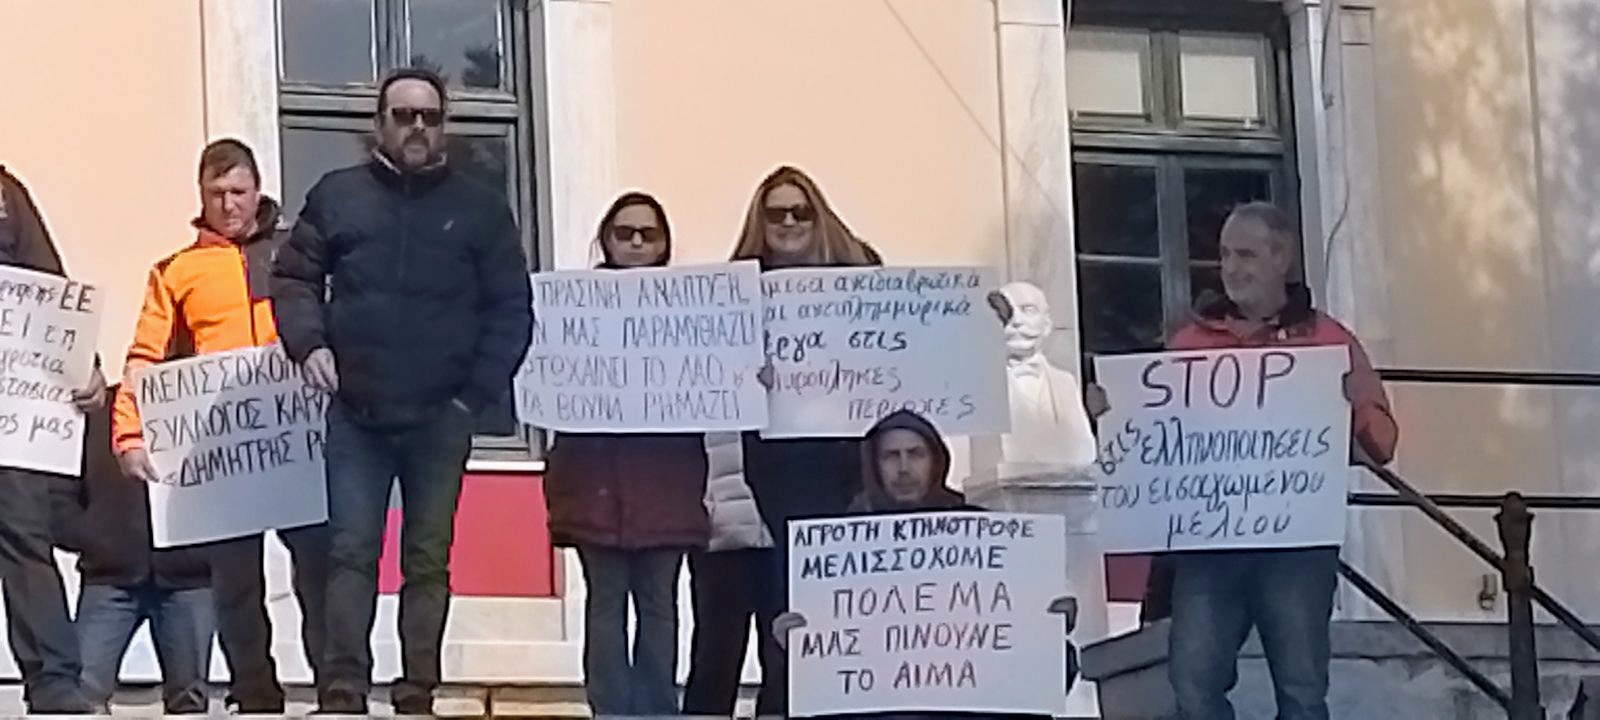 ΕΕ
μας
ΜΕΛΙΣΣΟΚΟΜ
ΣΥΛΛΟΓΟΣ ΚΑΡΥ
"ΔΗΜΗΤΡΗΣ
ΠΡΑΣΙΝΗ ΑΝΑΠΤΥΞΗ,
Ν ΜΑΣ ΠΑΡΑΜΥΘΙΑΖΕΙ
ΦΤΩΧΑΙΝΕΙ ΤΟ ΛΑΟ κ'
ΤΑ ΒΟΥΝΑ ΡΗΜΑΖΕΙ
μεσα αντιδιαβρωτικά
αι αντιπλημμυρικά
έργα στις
πυροπληκες
περιοχές
ΑΓΡΟΤΗ ΚΤΗΝΟΤΡΟΦΕ
ΜΕΛΙΣΣΟΚΟΜΕ
ΠΟΛΕΜΑ
ΜΑΣ ΠΙΝΟΥΝΕ
ΤΟ ΑΙΜΑ
STOP
στις ελληνοποιησεις
του εισαγωμένου
μελιού